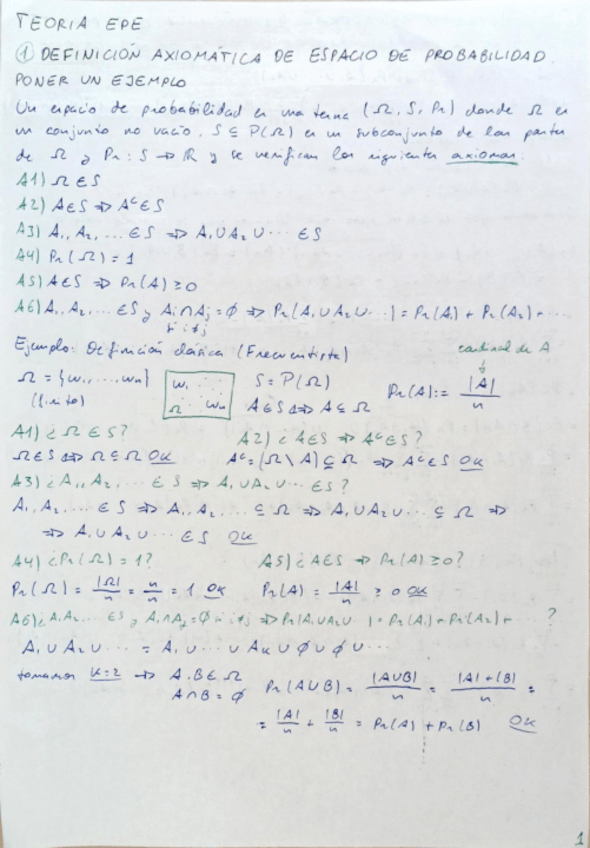 TEORIA EPE
① DEFINICIÓN AXIOMÁTICA DE ESPACIO DE PROBABILIDAD.
PONER UN EJEMPLO
Un espacio de probabilidad es una terna (Ω, S, Pr) donde Ω es
un conjunto no vacío, S ⊆ P(Ω) es un subconjunto de las partes
de Ω y Pr: S → ℝ y se verifican los siguientes axiomas:
A1) Ω ∈ S
A2) A ∈ S ⇒ Aᶜ ∈ S
A3) A₁, A₂, ... ∈ S ⇒ A₁ ∪ A₂ ∪ ... ∈ S
A4) Pr(Ω) = 1
A5) A ∈ S ⇒ Pr(A) ≥ 0
A6) A₁, A₂, ... ∈ S y Ai ∩ Aj = ∅ ⇒ Pr(A₁ ∪ A₂ ∪ ...) = Pr(A₁) + Pr(A₂) + ...
si i ≠ j
Ejemplo: Definición clásica (Frecuentista)
cardinal de A
Ω = {w₁, ... wn} w₁ ... wn Ω S = P(Ω) Pr(A) := |A|/n
(finito) A ∈ S ⇔ A ⊆ Ω
A1) ¿Ω ∈ S? A2) ¿A ∈ S ⇒ Aᶜ ∈ S?
Ω ∈ S ⇔ Ω ⊆ Ω OK Aᶜ = (Ω \ A) ⊆ Ω ⇒ Aᶜ ∈ S OK
A3) ¿A₁, A₂, ... ∈ S ⇒ A₁ ∪ A₂ ∪ ... ∈ S?
A₁, A₂, ... ∈ S ⇒ A₁, A₂, ... ⊆ Ω ⇒ A₁ ∪ A₂ ∪ ... ⊆ Ω ⇒
⇒ A₁ ∪ A₂ ∪ ... ∈ S OK
A4) ¿Pr(Ω) = 1? A5) ¿A ∈ S ⇒ Pr(A) ≥ 0?
Pr(Ω) = |Ω|/n = n/n = 1 OK Pr(A) = |A|/n ≥ 0 OK
A6) ¿A₁, A₂, ... ∈ S y Ai ∩ Aj = ∅ si i ≠ j ⇒ Pr(A₁ ∪ A₂ ∪ ...) = Pr(A₁) + Pr(A₂) + ... ?
A₁ ∪ A₂ ∪ ... = A₁ ∪ ... ∪ AK ∪ ∅ ∪ ∅ ∪ ...
tomamos K=2 ⇒ A, B ∈ Ω Pr(A ∪ B) = |A ∪ B|/n = |A| + |B|/n =
A ∩ B = ∅
= |A|/n + |B|/n = Pr(A) + Pr(B) OK
1